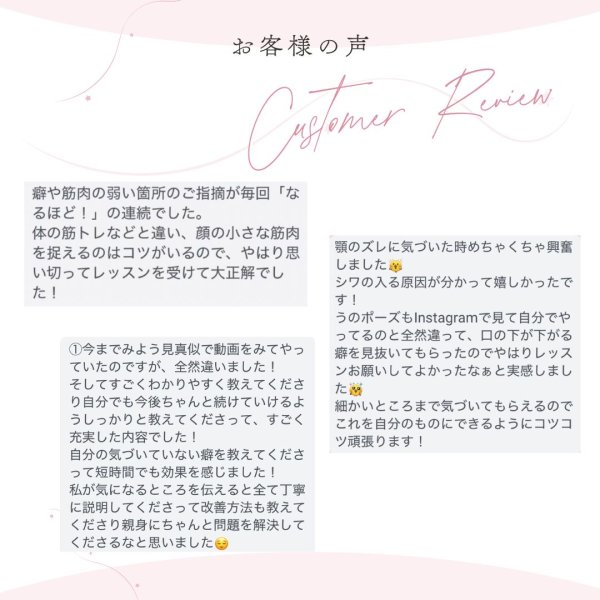 お客様の声
Customer Review
癖や筋肉の弱い箇所のご指摘が毎回「な
るほど！」の連続でした。
体の筋トレなどと違い、顔の小さな筋肉
を捉えるのはコツがいるので、やはり思
い切ってレッスンを受けて大正解でし
た！
顎のズレに気づいた時めちゃくちゃ興奮
しました😹
シワの入る原因が分かって嬉しかったで
す！
うのポーズもInstagramで見て自分でや
ってるのと全然違って、口の下が下がる
癖を見抜いてもらったのでやはりレッス
ンお願いしてよかったなぁと実感しまし
た😹
細かいところまで気づいてもらえるので
これを自分のものにできるようにコツコ
ツ頑張ります！
①今までみよう見真似で動画をみてやっ
ていたのですが、全然違いました！
そしてすごくわかりやすく教えてくださ
り自分でも今後ちゃんと続けていけるよ
うしっかりと教えてくださって、すごく
充実した内容でした！
自分の気づいていない癖を教えてくださ
って短時間でも効果を感じました！
私が気になるところを伝えると全て丁寧
に説明してくださって改善方法も教えて
くださり親身にちゃんと問題を解決して
くださるなと思いました😌